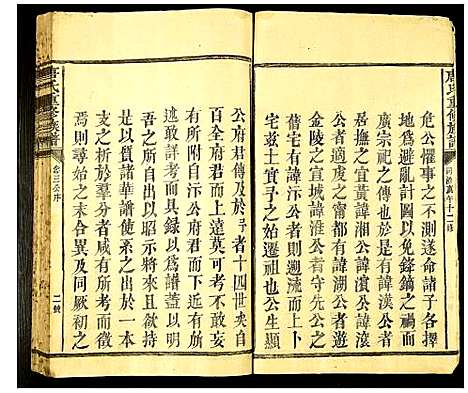 唐氏重修族譜
危公懼事之不測遂命諸子各擇
地為避亂計圖以免鋒鏑之禍而
廣宗祀之傳也於是有諱漢公者
居撫之宜黃諱湘公黃渡諱濱
公者適虔之甯都有諱湖公者居
金陵之宣黃諱淮公者守先公之
舊宅有諱汴公者則遡流而上卜
宅茲土實予之始遷祖也公生顯
百公府君傳及於予者十四世矣自
百全府君而上遠莫可考不敢妄
有所附自汴公府君而下近有所
述敢詳考而具錄以為譜蓋以明
吾人之有所自出昭示將來且欲持
是以質諸華譜使系之出於一
支之所析於羣分者咸有所考而徵
焉則尋始之未合異及同厥初之
唐氏重修族譜
卷三公序
二號